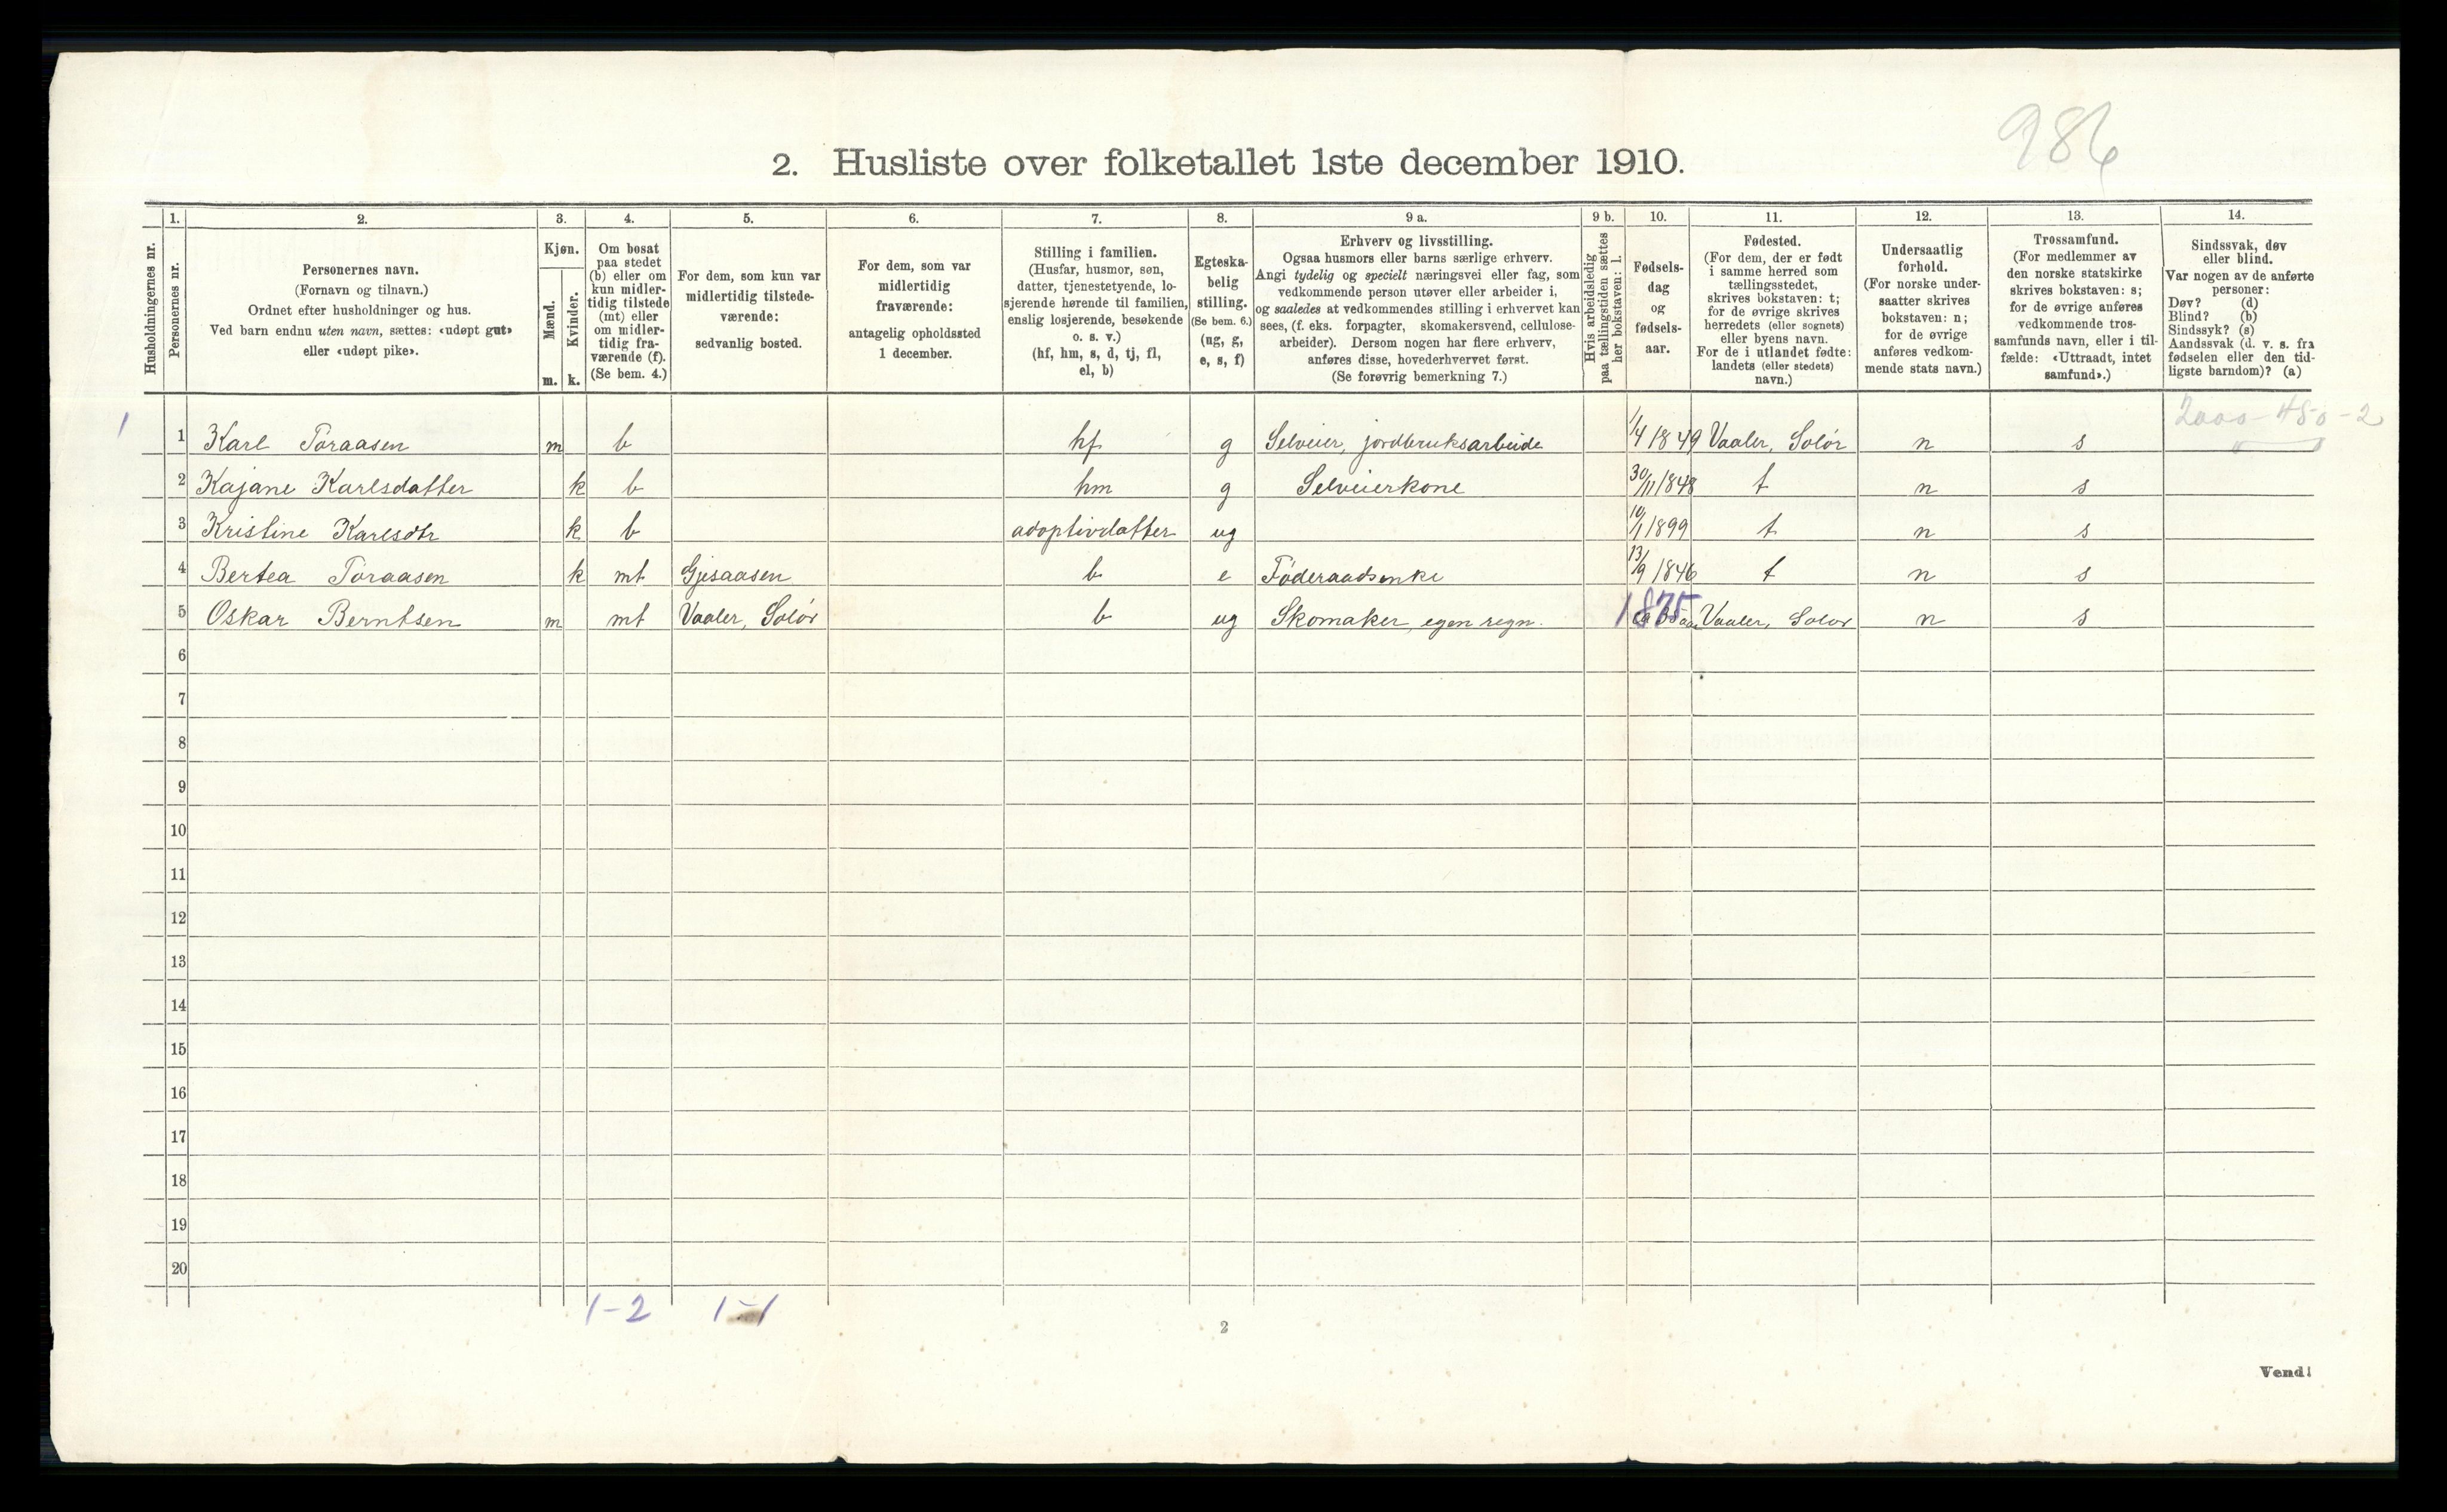 986
2. Husliste over folketallet 1ste december 1910.
Husholdningernes nr.
1.
Personernes nr.
2.
Personernes navn.
(Fornavn og tilnavn.)
Ordnet efter husholdninger og hus.
Ved barn endnu uten navn, sættes: «udøpt gut»
eller «udøpt pike».
3.
Kjøn.
Mænd.
m.
Kvinder.
k.
4.
Om bosat
paa stedet
(b) eller om
kun midler-
tidig tilstede
(mt) eller
om midler-
tidig fra-
værende (f).
(Se bem. 4.)
5.
For dem, som kun var
midlertidig tilstede-
værende:
sedvanlig bosted.
6.
For dem, som var
midlertidig
fraværende:
antagelig opholdssted
1 december.
7.
Stilling i familien.
(Husfar, husmor, søn,
datter, tjenestetyende, lo-
sjerende hørende til familien,
enslig losjerende, besøkende
o. s. v.)
(hf, hm, s, d, tj, fl,
el, b)
8.
Egteska-
belig
stilling.
(Se bem. 6.)
(ug, g,
e, s, f)
9 a.
Erhverv og livsstilling.
Ogsaa husmors eller barns særlige erhverv.
Angi tydelig og specielt næringsvei eller fag, som
vedkommende person utøver eller arbeider i,
og saaledes at vedkommendes stilling i erhvervet kan
sees, (f. eks. forpagter, skomakersvend, cellulose-
arbeider). Dersom nogen har flere erhverv,
anføres disse, hovederhvervet først.
(Se forøvrig bemerkning 7.)
9 b.
Hvis arbeidsledig
paa tællingstiden sættes
her bokstaven: l.
10.
Fødsels-
dag
og
fødsels-
aar.
11.
Fødested.
(For dem, der er født
i samme herred som
tællingsstedet,
skrives bokstaven: t;
for de øvrige skrives
herredets (eller sognets)
eller byens navn.
For de i utlandet fødte:
landets (eller stedets)
navn.)
12.
Undersaatlig
forhold.
(For norske under-
saatter skrives
bokstaven: n;
for de øvrige
anføres vedkom-
mende stats navn.)
13.
Trossamfund.
(For medlemmer av
den norske statskirke
skrives bokstaven: s;
for de øvrige anføres
vedkommende tros-
samfunds navn, eller i til-
fælde: «Uttraadt, intet
samfund».)
14.
Sindssvak, døv
eller blind.
Var nogen av de anførte
personer:
Døv? (d)
Blind? (b)
Sindssyk? (s)
Aandssvak (d. v. s. fra
fødselen eller den tid-
ligste barndom)? (a)
2000-450-2
1 1 Karl Toraasen m b hf g Selveier, jordbruksarbeide 1/4 1849 Vaaler, Solør n s
2 Kajane Karlsdatter k b hm g Selveierkone 30/11 1848 t n s
3 Kristine Karlsdtr k b adoptivdatter ug 10/1 1899 t n s
4 Bertea Toraasen k mt Gjesaasen b e Føderaadsenke 13/9 1846 t n s
5 Oskar Berntsen m mt Vaaler, Solør b ug Skomaker, egen regn. 1875 Vaaler, Solør n s
6
7
8
9
10
11
12
13
14
15
16
17
18
19
20
1-2 1-1
2
Vend!